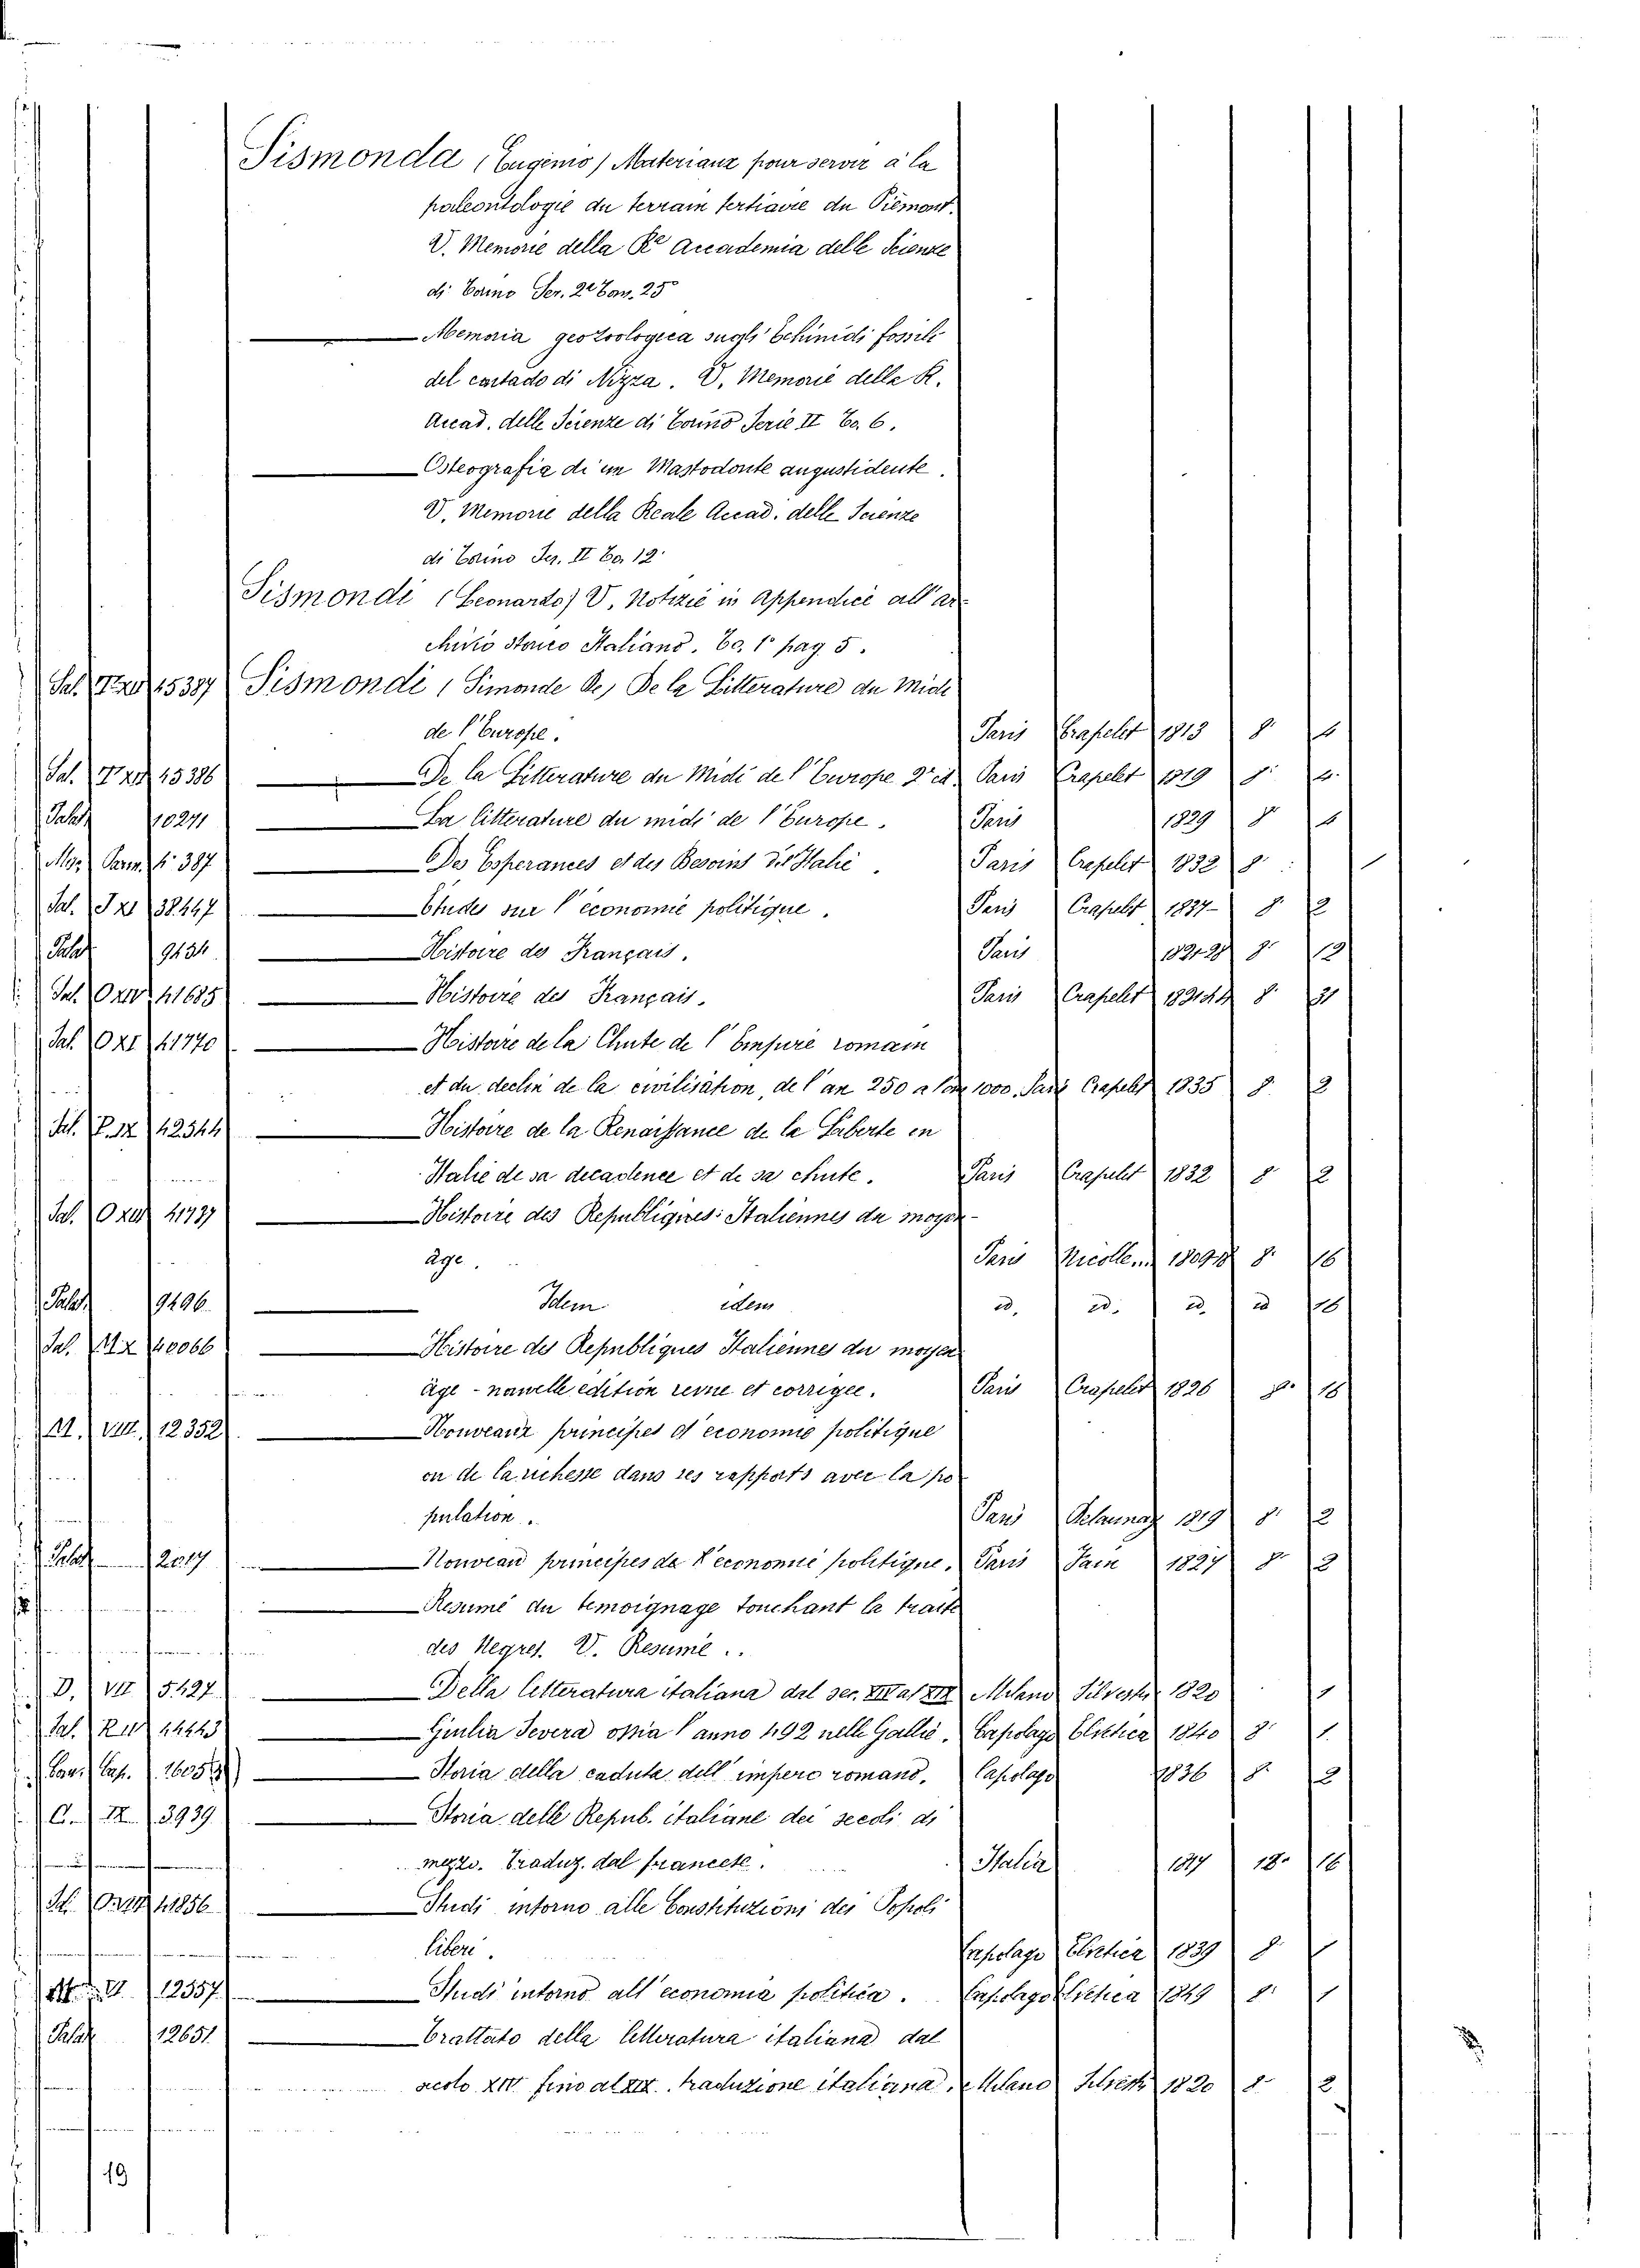 Sismonda (Eugenio) Materiaux pour servir à la
paleontologie du terrain tertiavre du Piemont.
V. Memorie della Rª Accademia delle Scienze
di Torino Ser. 2ª Tom. 25º
Memoria geozoologica sugli Echinidi fossili
del contado di Nizza. V. Memorie della R.
Accad. delle Scienze di Torino Serie II To. 6.
Osteografia di un Mastodonte angustidente.
V. Memorie della Reale Accad. delle Scienze
di Torino Ser. II To. 12
Sismondi (Leonardo) V. Notizie in Appendice all'ar-
chivio storico Italiano. To. 1º pag 5.
Sal. 15387 Sismondi (Simonde de) De la Litterature du Midi
de l'Europe. Paris Crapelet 1813 8º 4
Sal. 15386 De la Litterature du Midi de l'Europe 2ª ed. Paris Crapelet 1819 8º 4.
Palat 10271 La litterature du midi de l'Europe. Paris 1829 8º 4
Mor. Parm. 6. 387 Des Esperances et des Besoins de l'Italie. Paris Crapelet 1832 8º
Sal. 38447 Etudes sur l'économie politique. Paris Crapelet 1837- 8º 2
Palat 9434 Histoire des Français. Paris 1821-28 8º 12
Sal. 41685 Histoire des Français. Paris Crapelet 1821-44 8º 31
Sal. O XI 41770 Histoire de la Chute de l'Empire romain
et du declin de la civilisation, de l'an 250 a l'an 1000. Paris Crapelet 1835 8º 2
Sal. P. IX 42344 Histoire de la Renaissance de la Liberte en
Italie de sa decadence et de sa chute. Paris Crapelet 1832 8º 2
Sal. 41737 Histoire des Republiques Italiennes du moyen-
âge. Paris Nicolle 1809-18 8º 16
Palat 9496 Idem idem id. id. id. id 16
Sal. 40066 Histoire des Republiques Italiennes du moyen
âge - nouvelle edition revue et corrigée. Paris Crapelet 1826 8º 16
M. VIII. 12352 Nouveaux principes d'economie politique
ou de la richesse dans ses rapports avec la po-
pulation. Paris Delaunay 1819 8º 2
Palat 12017 Nouveau principes de l'economie politique. Paris Jain 1827 8º 2
Resumé du temoignage touchant la traite
des Negres. V. Resumé..
D. VII 5427 Della letteratura italiana dal sec. XIV al XIX Milano Silvestri 1820 1
Sal. 44443 Giulia Severa ossia l'anno 492 nelle Gallie. Capolago Elvetica 1840 8º 1.
Cav. Cap. Storia della caduta dell'impero romano. Capolago 1836 8º 2
C. IX. 3939 Storia delle Repub. italiane dei secoli di
mezzo. Traduz. dal francese. Italia 1817 18º 16
Sal. 41856 Studi intorno alle Constituzioni dei Popoli
liberi. Capolago Elvetica 1839 8º 1
M. 12357 Studi intorno all'economia politica. Capolago Elvetica 1849 8º 1
Palat 12651 Trattato della letteratura italiana dal
secolo XIV fino al XIX. traduzione italiana. Milano Silvestri 1820 8º 2
19